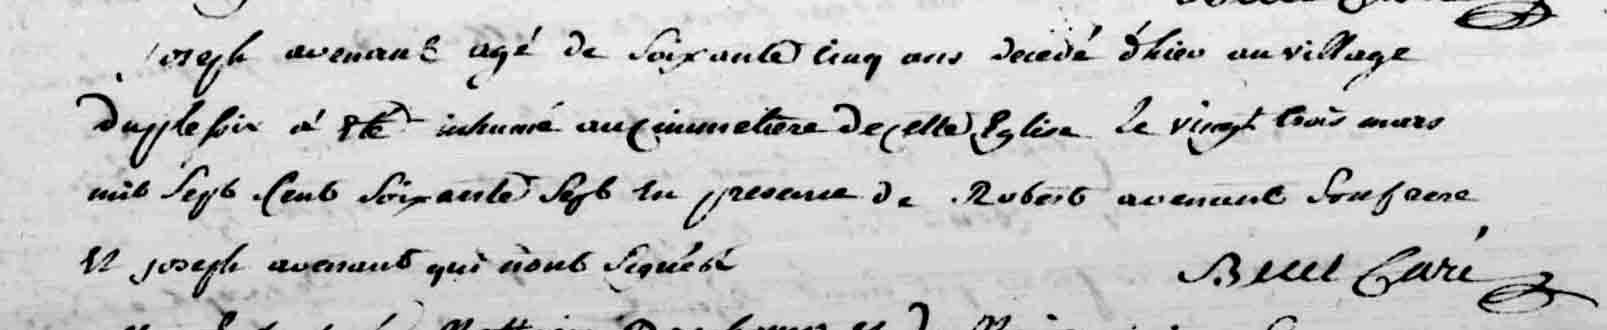 joseph avenant agé de soixante cinq ans decedé d'hier au village
duplesix a eté inhumé au cimmetiere de cette Eglise le vingt trois mars
mil sept cent soixante sept en presence de Robert avenant son frere
et joseph avenant qui n'ont signés
Curé